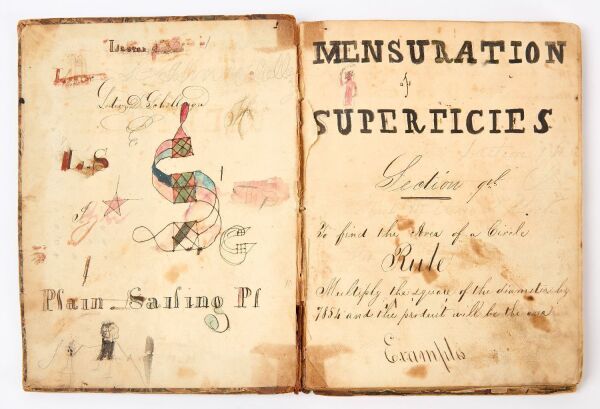 L.S
Plain Sailing Pl
MENSURATION
of
SUPERFICIES
Section 9th
To find the Area of a Circle
Rule
Multiply the square of the diameter by
7854 and the product will be the area
Example